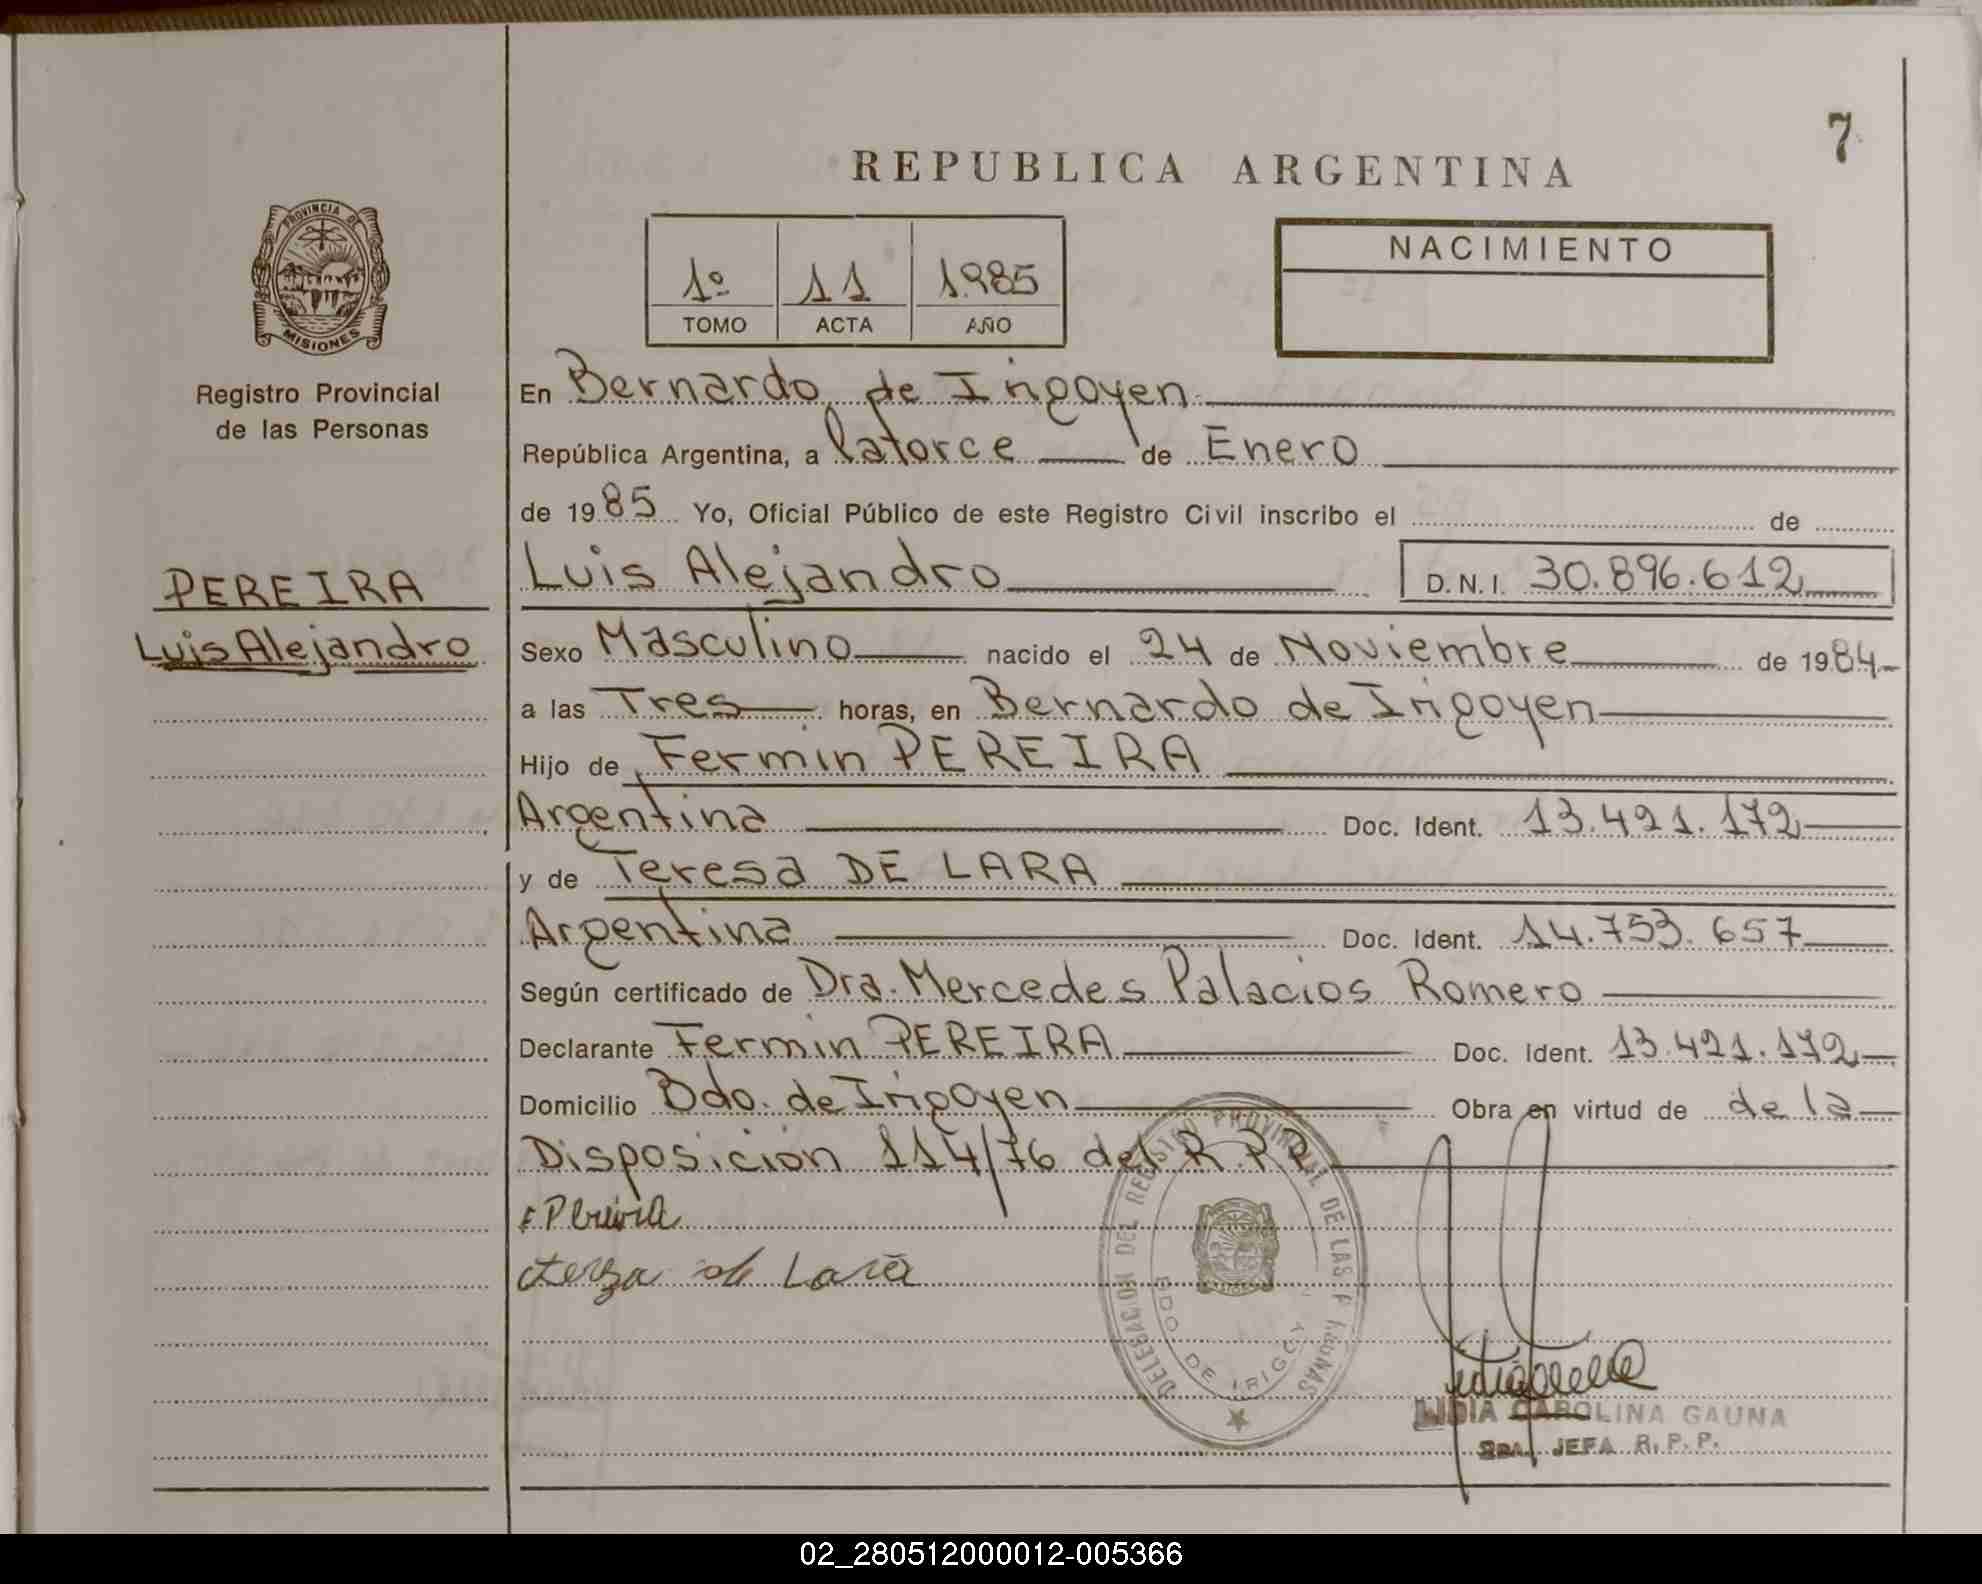 7
REPUBLICA ARGENTINA
PROVINCIA DE
MISIONES
Registro Provincial
de las Personas
1º 11 1985
TOMO ACTA AÑO
NACIMIENTO
En Bernardo de Irigoyen
República Argentina, a Catorce de Enero
de 1985 Yo, Oficial Público de este Registro Civil inscribo el de
PEREIRA
Luis Alejandro
Luis Alejandro D.N.I. 30.896.612
Sexo Masculino nacido el 24 de Noviembre de 1984
a las Tres horas, en Bernardo de Irigoyen
Hijo de Fermin PEREIRA
Argentina Doc. Ident. 13.421.172
y de Teresa DE LARA
Argentina Doc. Ident. 14.753.657
Según certificado de Dra. Mercedes Palacios Romero
Declarante Fermin PEREIRA Doc. Ident. 13.421.172
Domicilio Bdo. de Irigoyen Obra en virtud de de la
Disposición 114/76 del R.P.P.
F Pereira
de Lara
DELEGACION DEL REGISTRO PROVINCIAL DE LAS PERSONAS
BDO DE IRIGOY
LIDIA CAROLINA GAUNA
SRA. JEFA R.P.P.
02_280512000012-005366